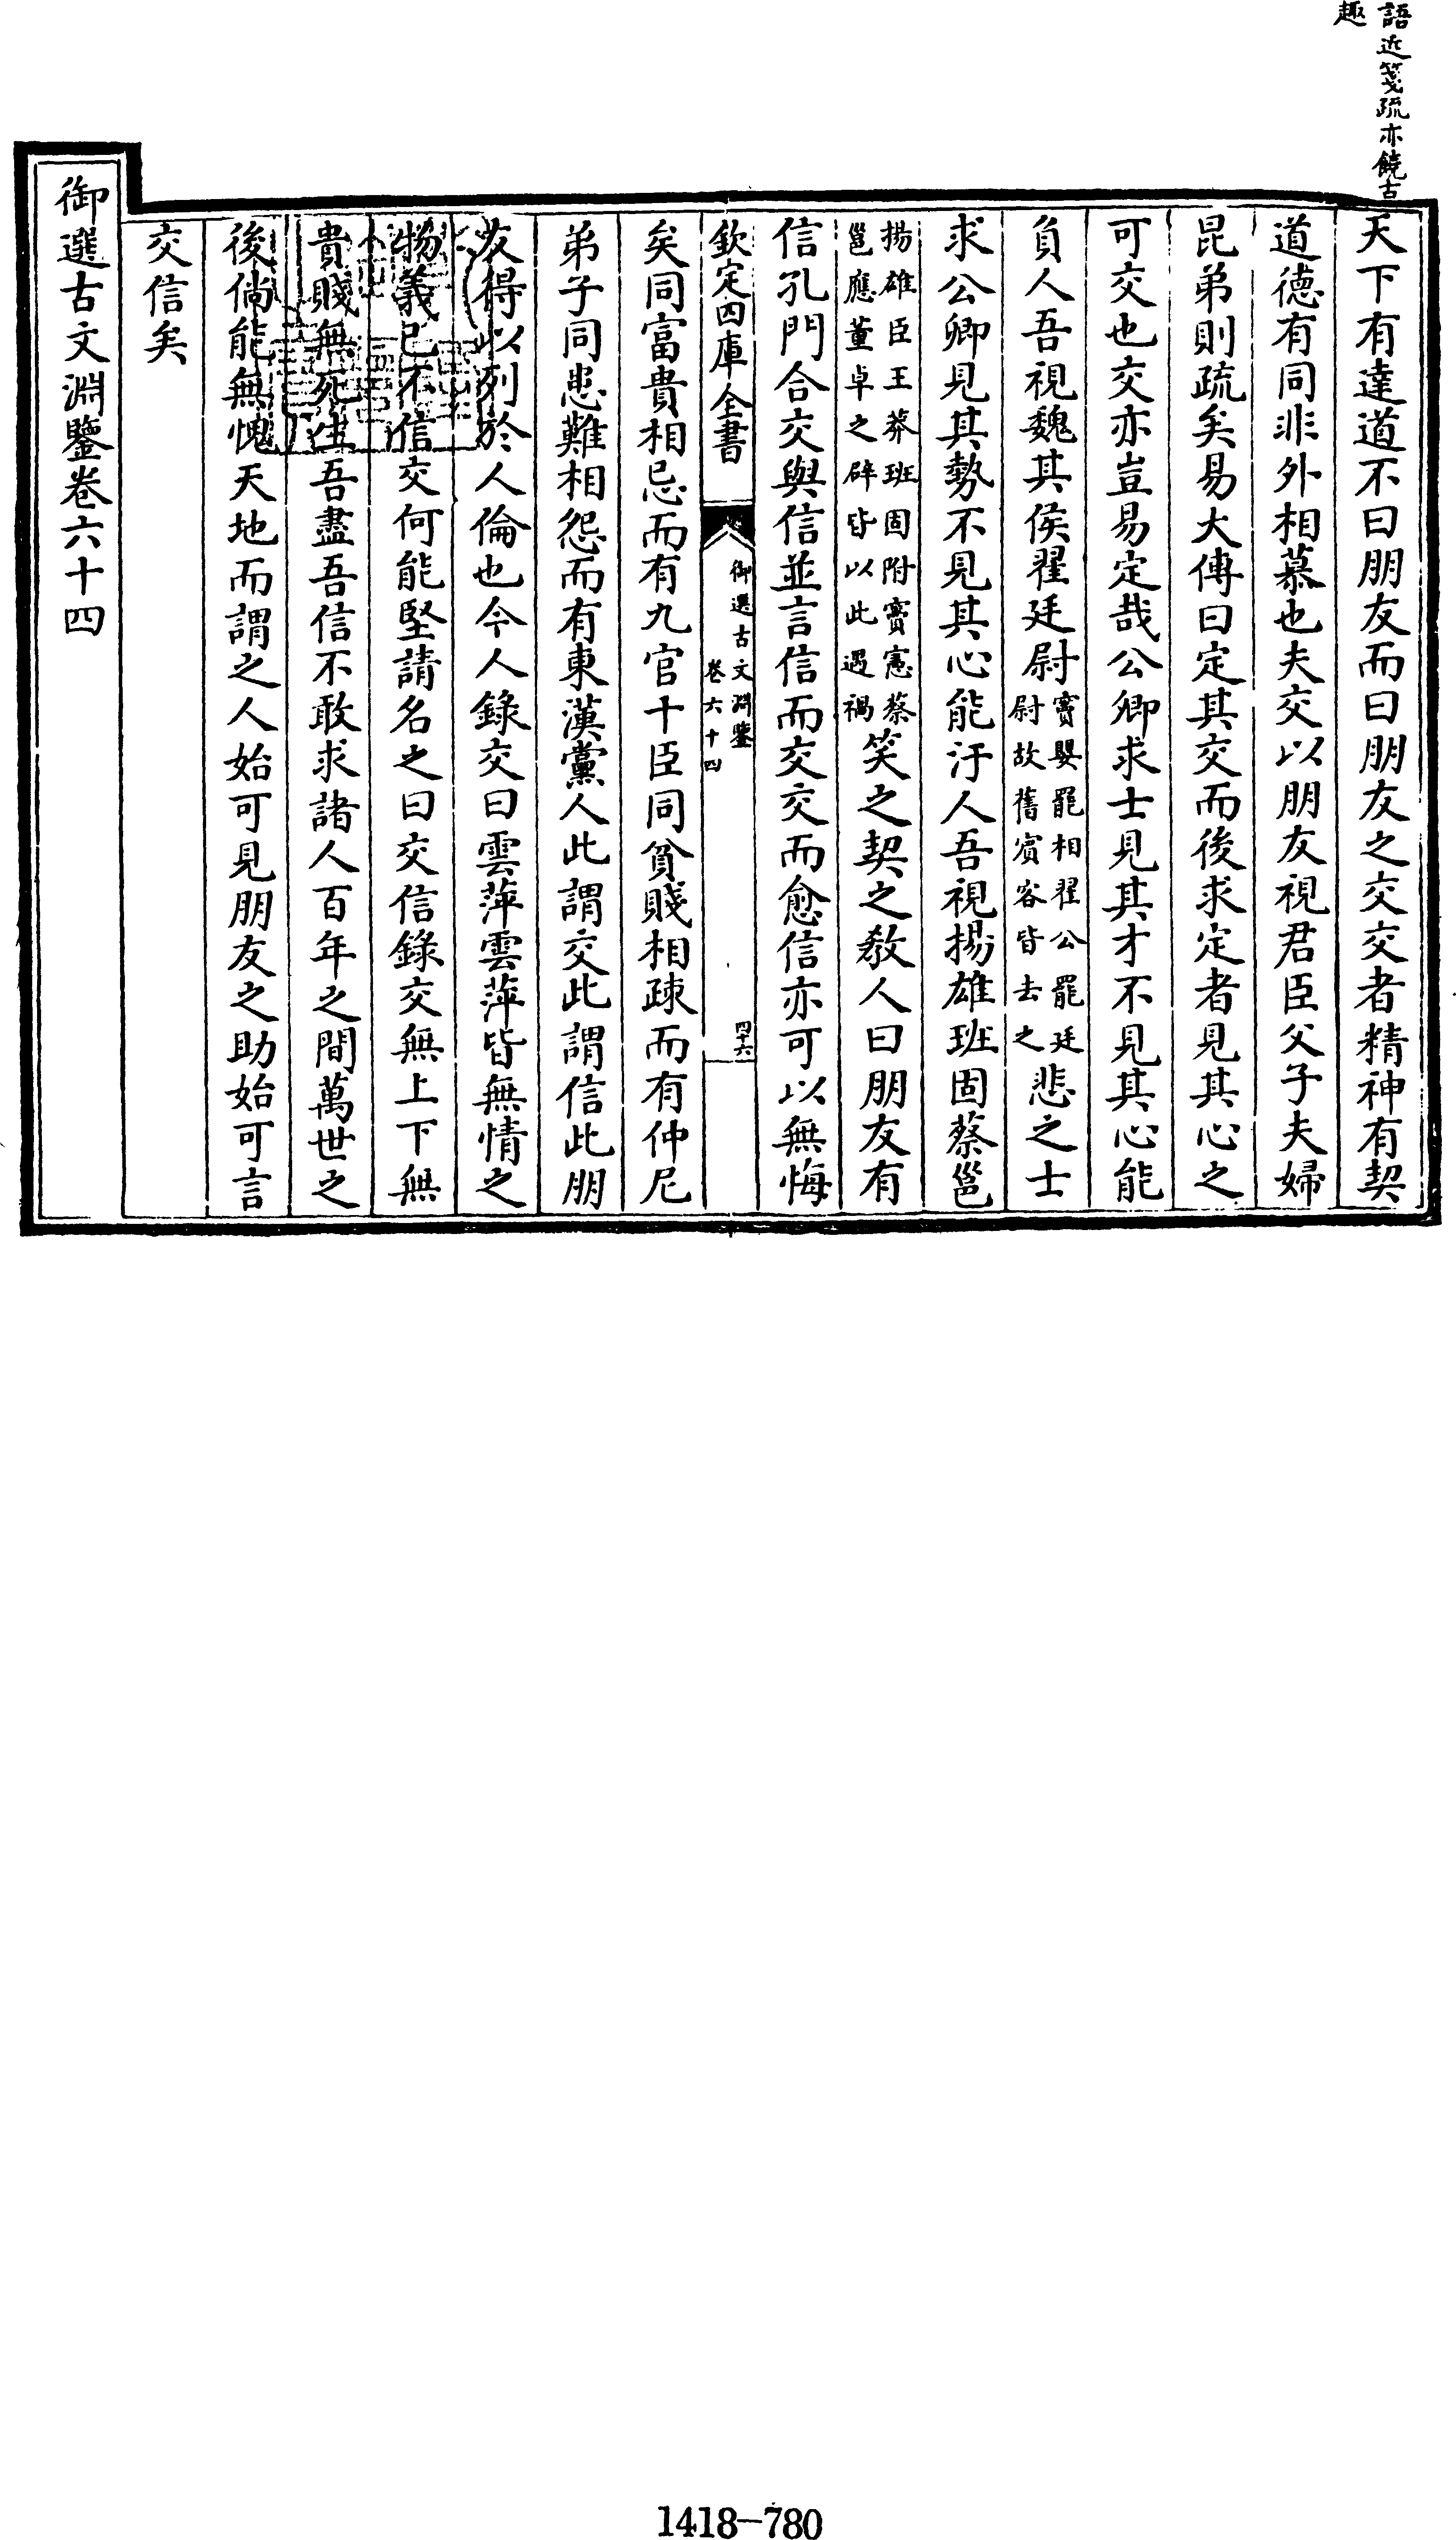 語近箋疏亦饒古
趣
天下有達道不曰朋友而曰朋友之交交者精神有契
道德有同非外相慕也夫交以朋友視君臣父子夫婦
昆弟則疏矣易大傳曰定其交而後求定者見其心之
可交也交亦豈易定哉公卿求士見其才不見其心能
負人吾視魏其侯翟廷尉竇嬰罷相翟公罷廷尉故舊賓客皆去之悲之士
求公卿見其勢不見其心能汙人吾視揚雄班固蔡邕
揚雄臣王莽班固附竇憲蔡邕應董卓之辟皆以此遇禍笑之契之教人曰朋友有
信孔門合交與信並言信而交交而愈信亦可以無悔
欽定四庫全書
御選古文淵鑒
卷六十四
四十六
矣同富貴相忌而有九官十臣同貧賤相疎而有仲尼
弟子同患難相怨而有東漢黨人此謂交此謂信此朋
友得以列於人倫也今人錄交曰雲萍雲萍皆無情之
物義已不信交何能堅請名之曰交信錄交無上下無
貴賤無死生吾盡吾信不敢求諸人百年之間萬世之
後倘能無愧天地而謂之人始可見朋友之助始可言
交信矣
御選古文淵鑒卷六十四
1418-780